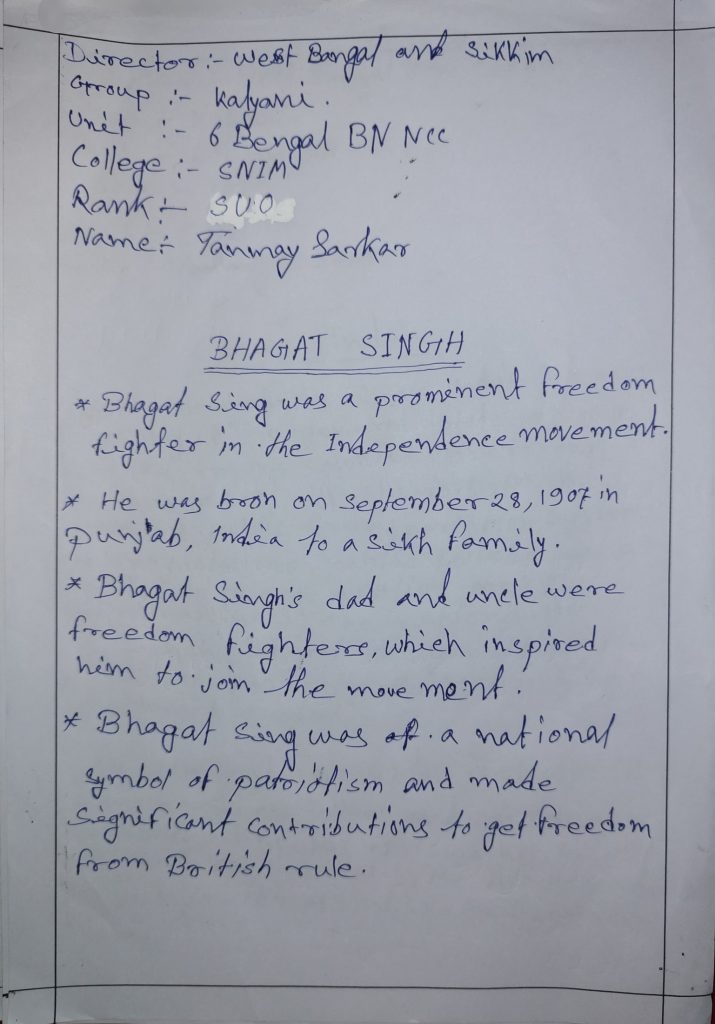 Director :- West Bangal and Sikkim
Group :- Kalyani.
Unit :- 6 Bengal BN NCC
College :- SNIM
Rank :- SUO
Name :- Tanmay Sarkar
BHAGAT SINGH
* Bhagat Sing was a prominent freedom
fighter in the Independence movement.
* He was bron on September 28, 1907 in
Punjab, India to a Sikh family.
* Bhagat Singh's dad and uncle were
freedom fighters, which inspired
him to join the movement.
* Bhagat Sing was of a national
symbol of patriotism and made
significant contributions to get freedom
from British rule.